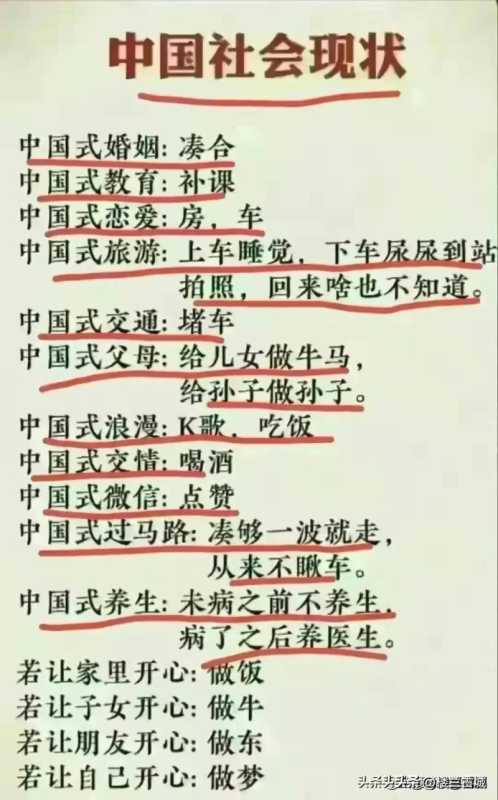 中国社会现状
中国式婚姻: 凑合
中国式教育: 补课
中国式恋爱: 房，车
中国式旅游: 上车睡觉，下车尿尿到站
拍照，回来啥也不知道。
中国式交通: 堵车
中国式父母: 给儿女做牛马，
给孙子做孙子。
中国式浪漫: K歌，吃饭
中国式交情: 喝酒
中国式微信: 点赞
中国式过马路: 凑够一波就走，
从来不瞅车。
中国式养生: 未病之前不养生，
病了之后养医生。
若让家里开心: 做饭
若让子女开心: 做牛
若让朋友开心: 做东
若让自己开心: 做梦
头条